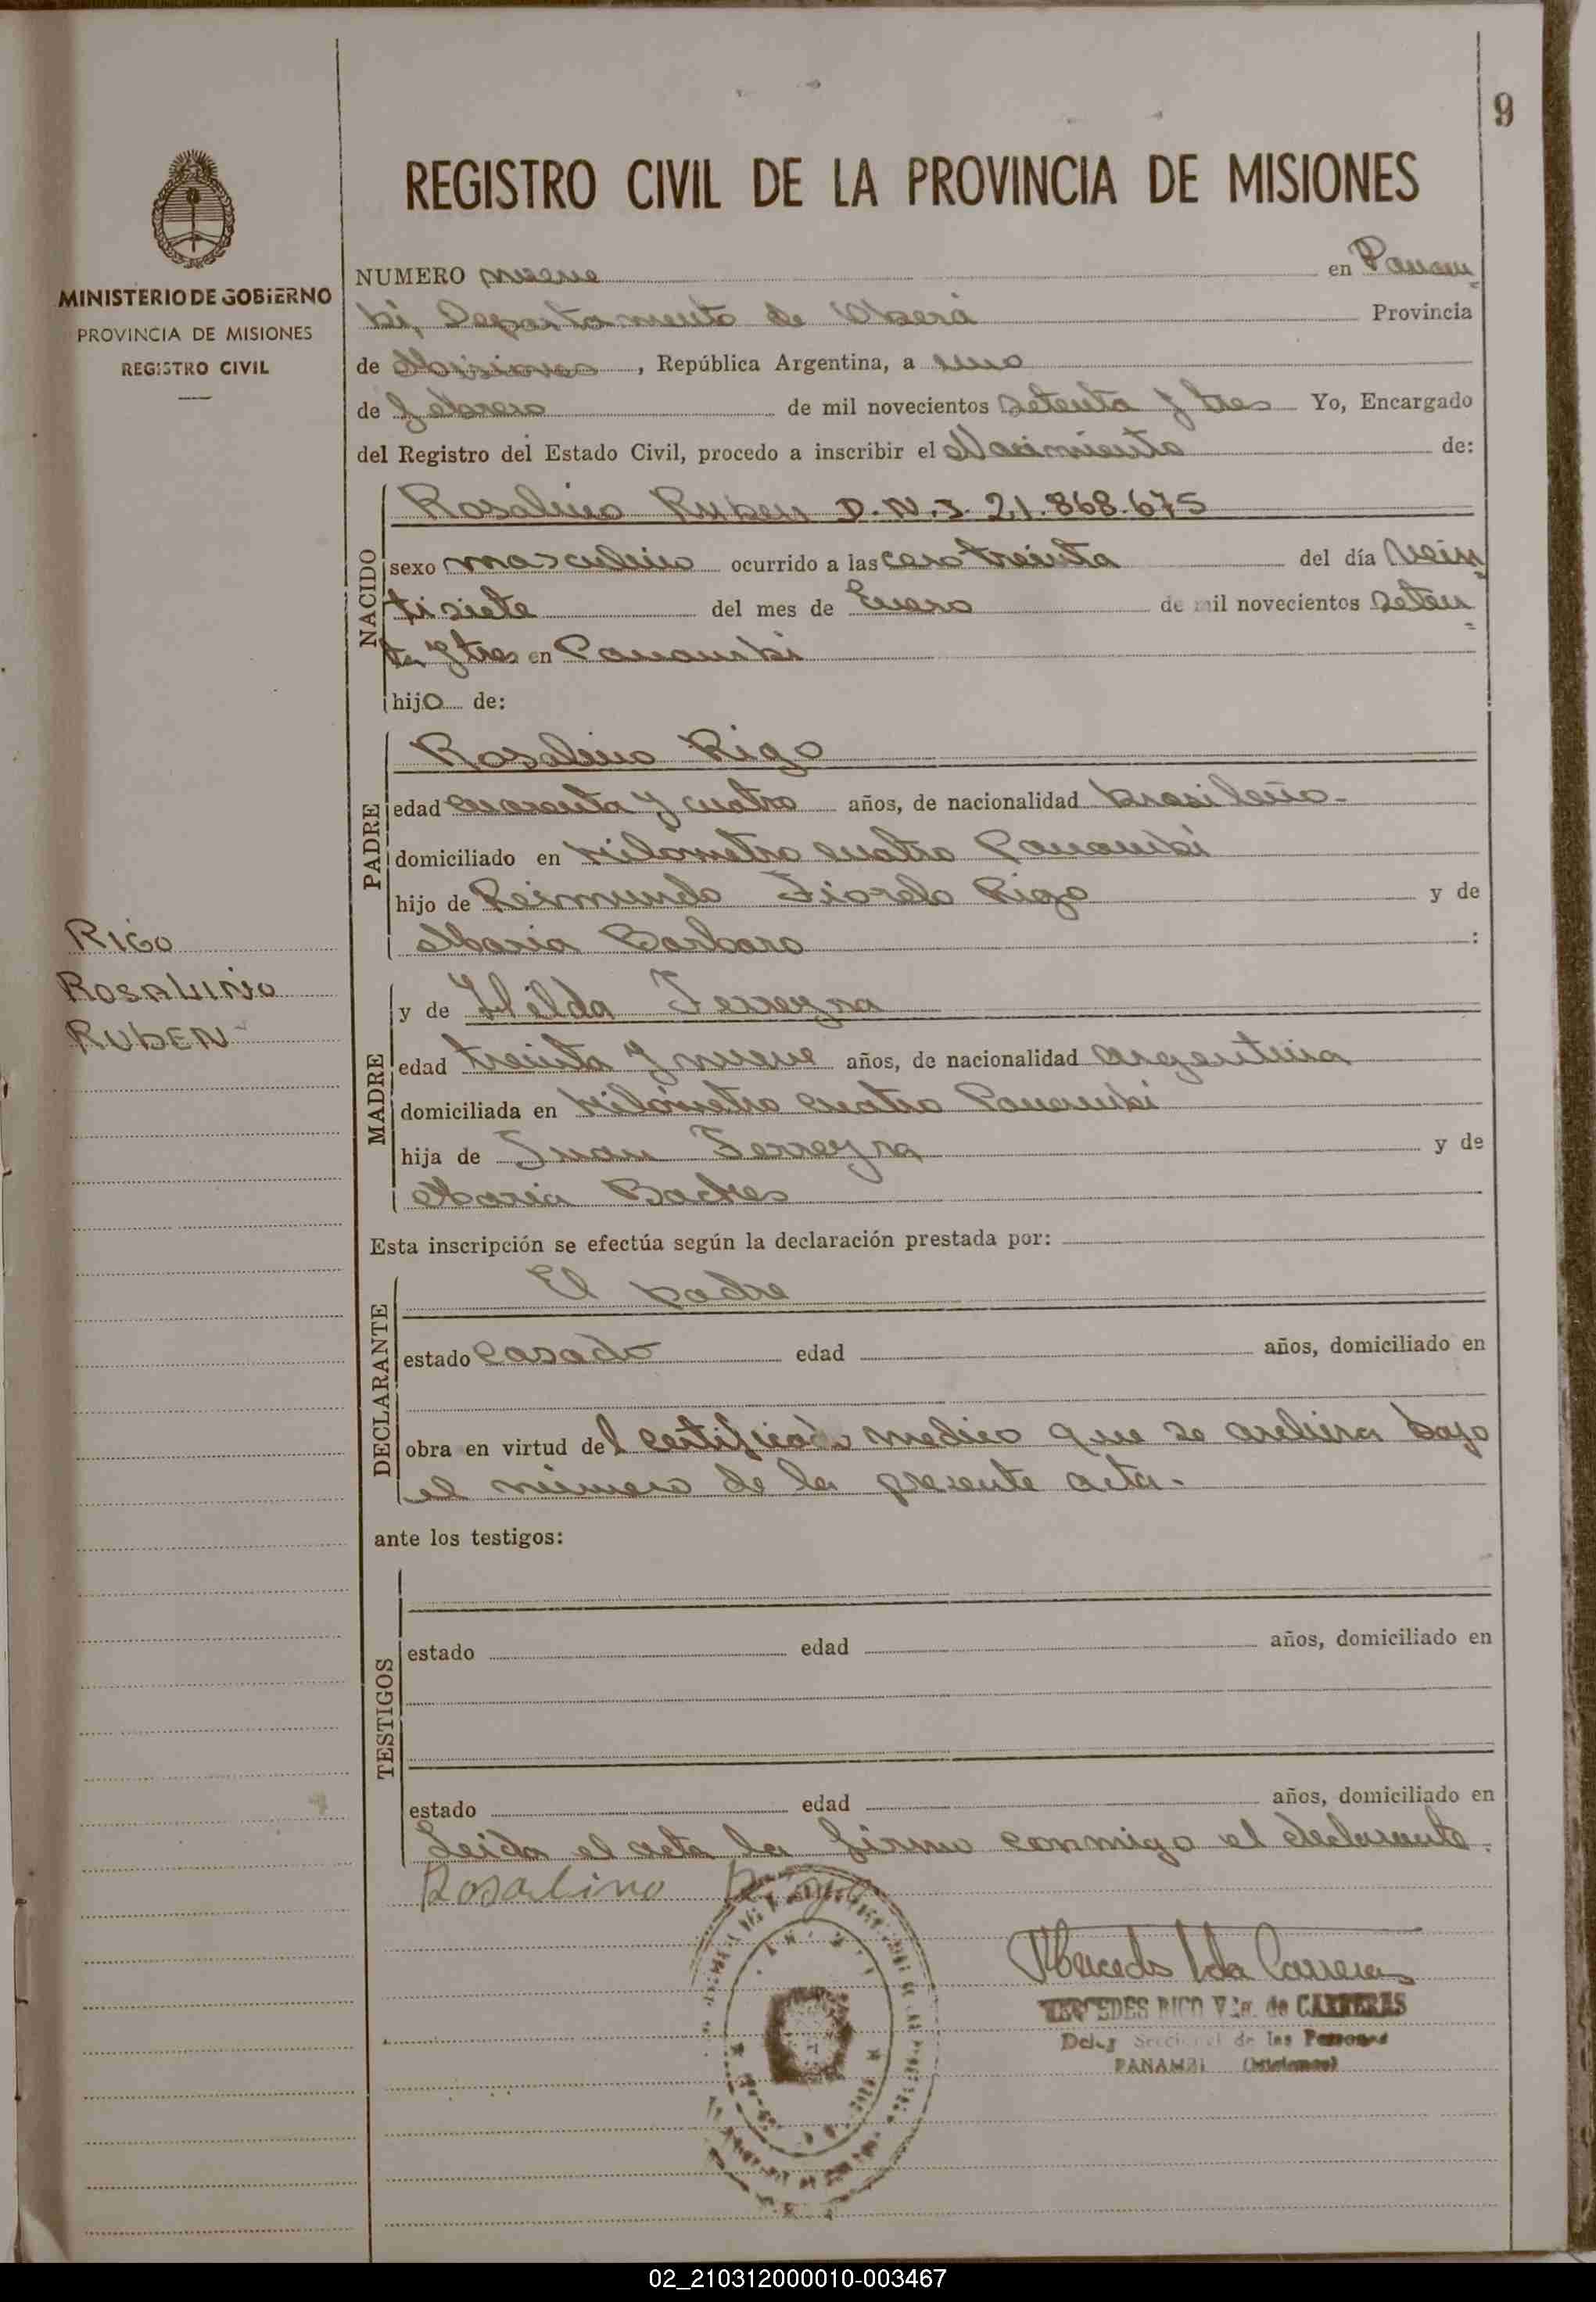 9
REGISTRO CIVIL DE LA PROVINCIA DE MISIONES
MINISTERIO DE GOBIERNO
PROVINCIA DE MISIONES
REGISTRO CIVIL
NUMERO nueve en Panam
bi, Departamento de Oberá Provincia
de Misiones, República Argentina, a uno
de Febrero de mil novecientos setenta y tres Yo, Encargado
del Registro del Estado Civil, procedo a inscribir el Nacimiento de:
NACIDO
Rosalino Ruben D.N.I. 21.868.675
sexo masculino ocurrido a las cero treinta del día vein
tisiete del mes de Enero de mil novecientos seten
ta y tres en Panambi
hijo de:
PADRE
Rosalino Rigo
edad cuarenta y cuatro años, de nacionalidad brasileño-
domiciliado en kilometro cuatro Panambi
hijo de Reimundo Fiorelo Rigo y de
Maria Barbaro :
RIGO
ROSALINO
RUBEN
MADRE
y de Hilda Ferreyra
edad treinta y nueve años, de nacionalidad argentina
domiciliada en kilómetro cuatro Panambi
hija de Juan Ferreyra y de
Maria Backes
Esta inscripción se efectúa según la declaración prestada por:
DECLARANTE
El padre
estado casado edad años, domiciliado en
obra en virtud del certificado medico que se archiva bajo
el número de la presente acta.
ante los testigos:
TESTIGOS
estado edad años, domiciliado en
estado edad años, domiciliado en
Leida el acta la firma conmigo el declarante.
Rosalino Rigo
Mercedes Carreras
MERCEDES RICO Vda. de CARRERAS
Deleg Seccional de las Personas
PANAMBI (Misiones)
02_210312000010-003467